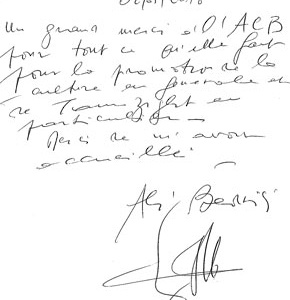 Un grand merci à l'ACB
pour tout ce qu'elle fait
pour la promotion de la
culture en générale et
de Tamazight en
particulier
Merci de m'avoir
accueilli